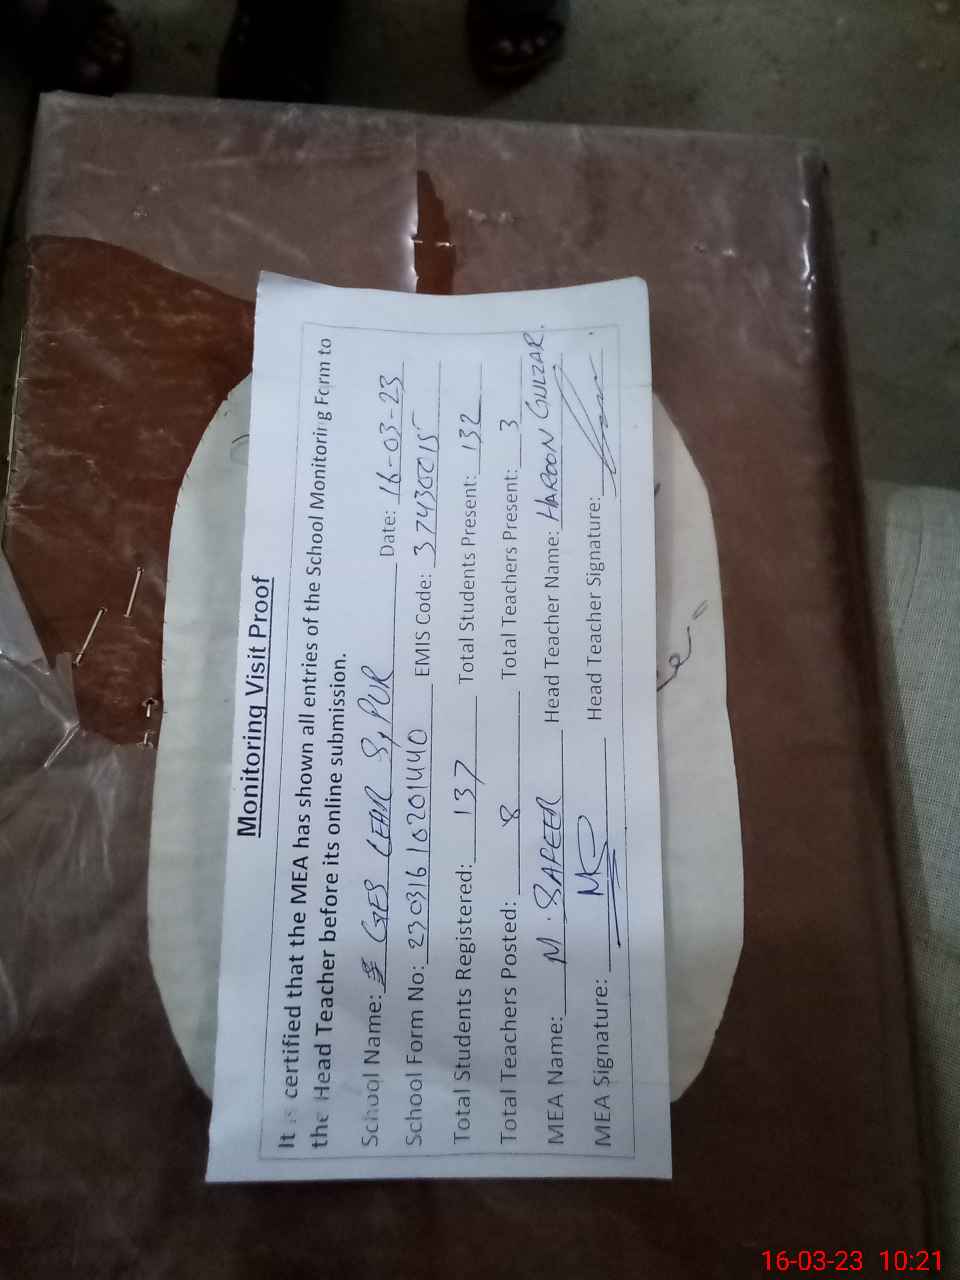 Monitoring Visit Proof
It is certified that the MEA has shown all entries of the School Monitoring Form to
the Head Teacher before its online submission.
School Name: GES LEHR S,PUR Date: 16-03-23
School Form No: 23031610201440 EMIS Code: 37430015
Total Students Registered: 137 Total Students Present: 132
Total Teachers Posted: 8 Total Teachers Present: 3
MEA Name: M. SAFEER Head Teacher Name: HAROON GULZAR.
MEA Signature: Head Teacher Signature:
16-03-23 10:21